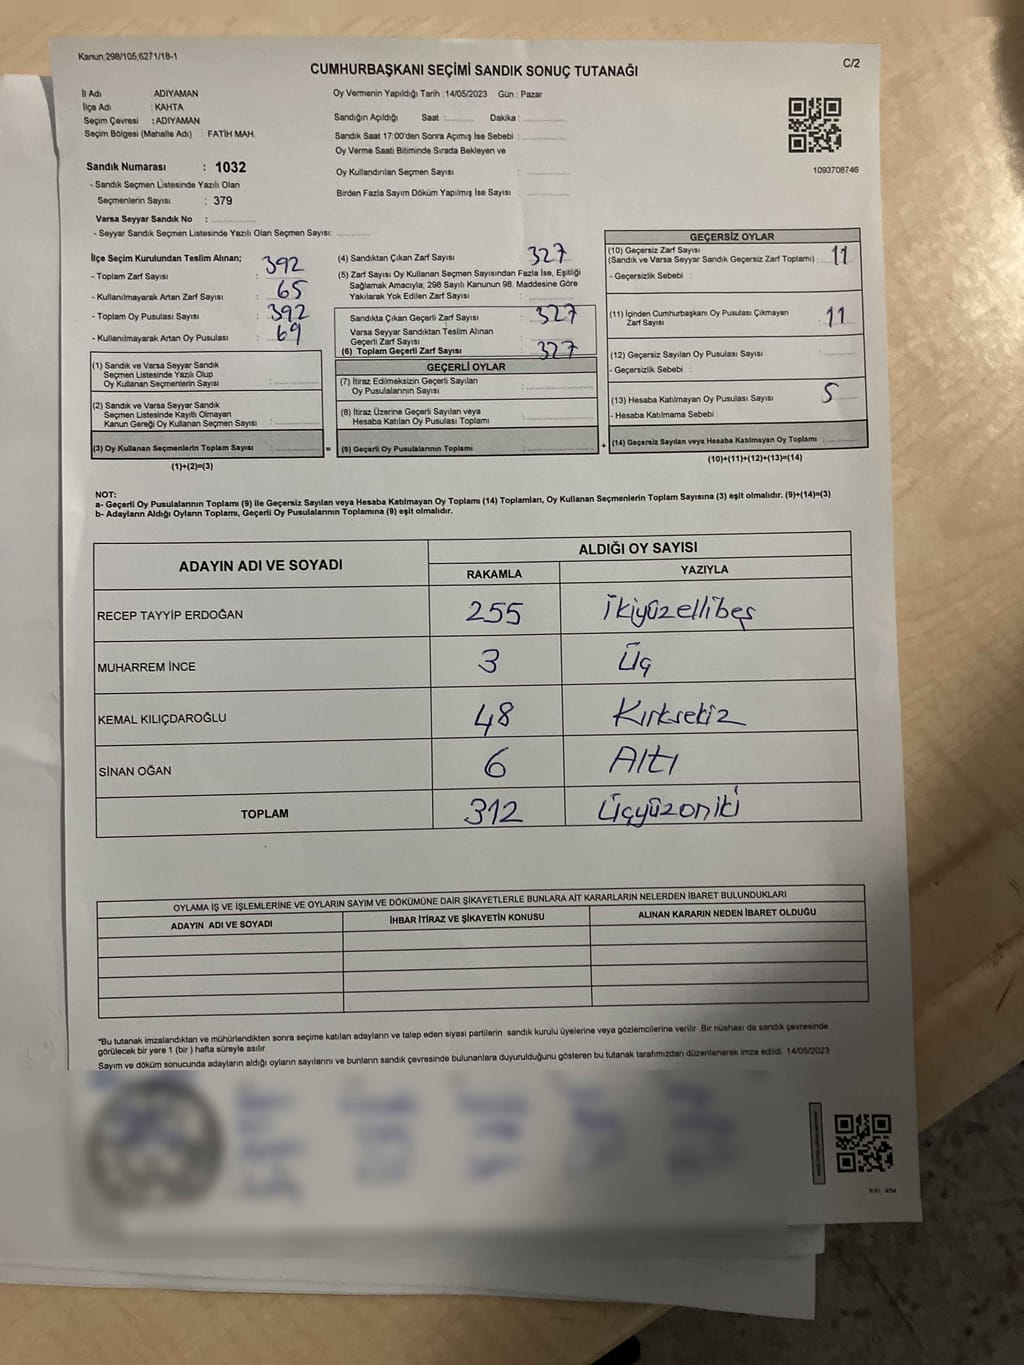 Kanun;298/105;6271/18-1
C/2
CUMHURBAŞKANI SEÇİMİ SANDIK SONUÇ TUTANAĞI
İl Adı : ADIYAMAN
İlçe Adı : KAHTA
Seçim Çevresi : ADIYAMAN
Seçim Bölgesi (Mahalle Adı) : FATİH MAH.
Sandık Numarası : 1032
- Sandık Seçmen Listesinde Yazılı Olan
Seçmenlerin Sayısı : 379
Varsa Seyyar Sandık No :
- Seyyar Sandık Seçmen Listesinde Yazılı Olan Seçmen Sayısı:
Oy Vermenin Yapıldığı Tarih :14/05/2023 Gün : Pazar
Sandığın Açıldığı Saat : Dakika :
Sandık Saat 17:00'den Sonra Açımış İse Sebebi :
Oy Verme Saati Bitiminde Sırada Bekleyen ve
Oy Kullandırılan Seçmen Sayısı :
Birden Fazla Sayım Döküm Yapılmış İse Sayısı :
1093708746
İlçe Seçim Kurulundan Teslim Alınan;
- Toplam Zarf Sayısı : 392
- Kullanılmayarak Artan Zarf Sayısı : 65
- Toplam Oy Pusulası Sayısı : 392
- Kullanılmayarak Artan Oy Pusulası : 69
(1) Sandık ve Varsa Seyyar Sandık
Seçmen Listesinde Yazılı Olup
Oy Kullanan Seçmenlerin Sayısı :
(2) Sandık ve Varsa Seyyar Sandık
Seçmen Listesinde Kayıtlı Olmayan
Kanun Gereği Oy Kullanan Seçmen Sayısı :
(3) Oy Kullanan Seçmenlerin Toplam Sayısı :
(1)+(2)=(3)
=
(4) Sandıktan Çıkan Zarf Sayısı : 327
(5) Zarf Sayısı Oy Kullanan Seçmen Sayısından Fazla İse, Eşitliği
Sağlamak Amacıyla; 298 Sayılı Kanunun 98. Maddesine Göre
Yakılarak Yok Edilen Zarf Sayısı :
Sandıkta Çıkan Geçerli Zarf Sayısı : 327
Varsa Seyyar Sandıktan Teslim Alınan
Geçerli Zarf Sayısı :
(6) Toplam Geçerli Zarf Sayısı : 327
GEÇERLİ OYLAR
(7) İtiraz Edilmeksizin Geçerli Sayılan
Oy Pusulalarının Sayısı :
(8) İtiraz Üzerine Geçerli Sayılan veya
Hesaba Katılan Oy Pusulası Toplamı :
(9) Geçerli Oy Pusulalarının Toplamı :
+
GEÇERSİZ OYLAR
(10) Geçersiz Zarf Sayısı
(Sandık ve Varsa Seyyar Sandık Geçersiz Zarf Toplamı) : 11
- Geçersizlik Sebebi :
(11) İçinden Cumhurbaşkanı Oy Pusulası Çıkmayan
Zarf Sayısı : 11
(12) Geçersiz Sayılan Oy Pusulası Sayısı :
- Geçersizlik Sebebi :
(13) Hesaba Katılmayan Oy Pusulası Sayısı : 5
- Hesaba Katılmama Sebebi :
(14) Geçersiz Sayılan veya Hesaba Katılmayan Oy Toplamı :
(10)+(11)+(12)+(13)=(14)
NOT:
a- Geçerli Oy Pusulalarının Toplamı (9) ile Geçersiz Sayılan veya Hesaba Katılmayan Oy Toplamı (14) Toplamları, Oy Kullanan Seçmenlerin Toplam Sayısına (3) eşit olmalıdır. (9)+(14)=(3)
b- Adayların Aldığı Oyların Toplamı, Geçerli Oy Pusulalarının Toplamına (9) eşit olmalıdır.
ADAYIN ADI VE SOYADI
ALDIĞI OY SAYISI
RAKAMLA YAZIYLA
RECEP TAYYİP ERDOĞAN 255 İkiyüzellibeş
MUHARREM İNCE 3 Üç
KEMAL KILIÇDAROĞLU 48 Kırksekiz
SİNAN OĞAN 6 Altı
TOPLAM 312 Üçyüzoniki
OYLAMA İŞ VE İŞLEMLERİNE VE OYLARIN SAYIM VE DÖKÜMÜNE DAİR ŞİKAYETLERLE BUNLARA AİT KARARLARIN NELERDEN İBARET BULUNDUKLARI
ADAYIN ADI VE SOYADI İHBAR İTİRAZ VE ŞİKAYETİN KONUSU ALINAN KARARIN NEDEN İBARET OLDUĞU
*Bu tutanak imzalandıktan ve mühürlendikten sonra seçime katılan adayların ve talep eden siyasi partilerin sandık kurulu üyelerine veya gözlemcilerine verilir. Bir nüshası da sandık çevresinde
görülecek bir yere 1 (bir ) hafta süreyle asılır.
Sayım ve döküm sonucunda adayların aldığı oyların sayılarını ve bunların sandık çevresinde bulunanlara duyurulduğunu gösteren bu tutanak tarafımızdan düzenlenerek imza edildi. 14/05/2023